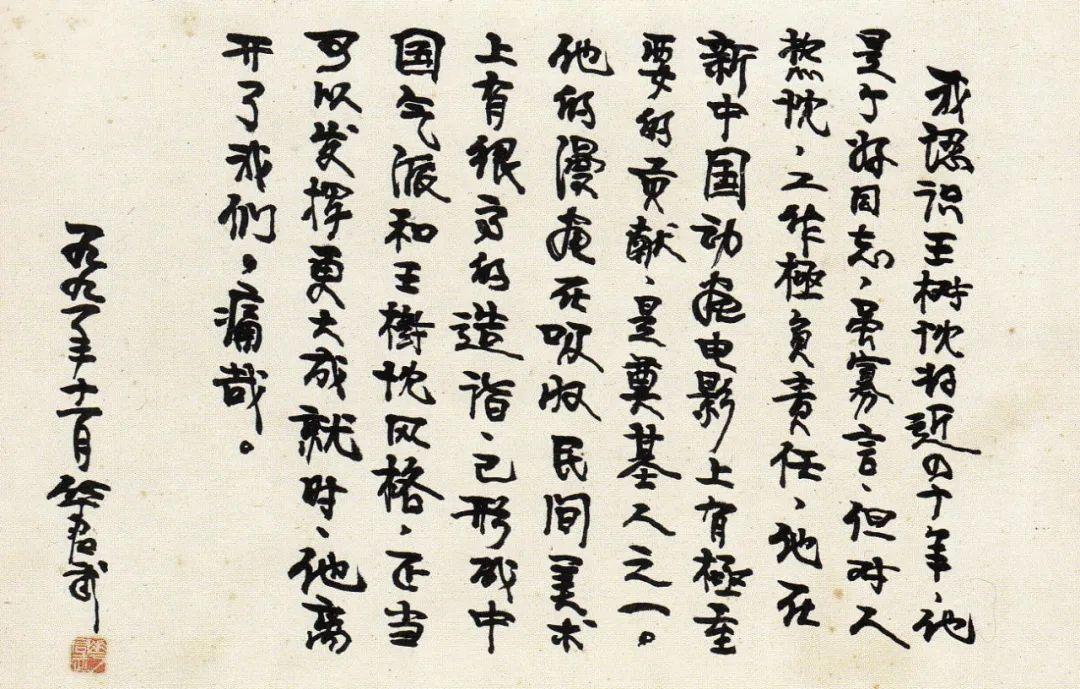 我認识王树忱将近四十年、他
是个好同志、虽寡言、但对人
热忱、工作極负责任、他在
新中国动画电影上有極重
要的贡献、是奠基人之一。
他的漫画在吸收民间美术
上有很高的造诣、已形成中
国气派和王樹忱风格、正当
可以发挥更大成就时、他离
开了我们、痛哉。
一九九一年十一月 华君武